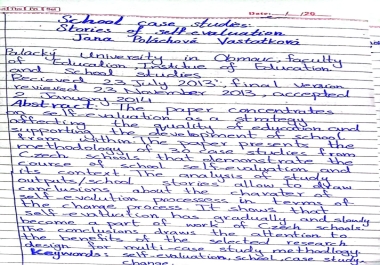 Date: / /20
School case studies:
Stories of self evaluation
Jana Poláchová Vastatková
Palacký University in Olmouc, faculty
of Education Institute of Education
and School studies
Received 23 July 2013; final version
reviewed 23 November 2013, accepted
2 January 2014
Abstract: The paper concentrates
on self-evaluation as a strategy
affecting the quality of education and
supporting the development of school
& within the paper presents the
methodology of 32 case studies from
Czech schools that demonstrate the
course of school self-evaluation and
its context. The analysis of study
outputs/school stories allow to draw
conclusions about the charater of
self-evalution processess in terms of
the change process. It shows that
self-evaltuation has gradually and slowly
become a part of work of Czech schools.
The conclusions draws the attention to
the benefits of the selected research
design for multi-case study methodology
Keywords: self-evaluation, school, case study,
change.